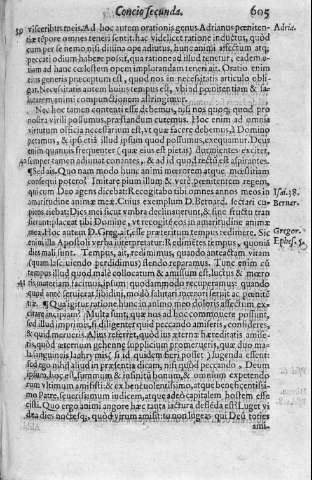 Concio secunda. 605
visceribus meis. Ad hoc autem orationis genus Adrianus peniten- Adria.
tiæ tempore omnes teneri sentit: hac videlicet ratione inductus, quòd
cum per se nemo nisi divina ope adiutus, hunc animi affectum atq;
peccati odium habere possit, qua ratione ad illud tenetur, eadem o-
ratione ad hanc cœlestem opem implorandam teneri ait. Oratio enim
generis præceptum est, quod nos in necessitatis articulo obli-
gat. Necessitatis autem huius tempus est, ubi ad penitentiam & sa-
lutarem animi compunctionem astringimur.
Nec hoc tamen contenti esse debemus, nisi nos quoq; quod pro
nostra virili possumus, præstandum curemus. Hoc enim ad omnia
virtutum officia necessarium est, vt quæ facere debemus, à Domino
petamus, & ipsi etiã illud ipsum quod possumus, exequamur. Deus
enim quamvis frequenter (quæ eius est pietas) dormientes excitet,
semper tamen adiuvat conantes, & ad id quod rectũ est aspirantes.
¶Sed ais. Quo nam modo hunc animi mœrorem atque mœstitiam
consequi potero? Imitare pium illum & verè penitentem regem
qui cum Deo agens dicebat: Recogitabo tibi omnes annos meos in Isai. 38.
amaritudine animæ meæ. Cuius exemplum D. Bernard. sectari cu- Bernar.
piens aiebat: Dies mei sicut vmbra declinauerunt, & sine fructu tran
sierunt: placeat tibi Domine, vt recogitẽ eos in amaritudine animæ
meæ. Hoc autem D. Greg. ait, esse præteritum tempus redimere. Sic Gregor.
enim illa Apostoli verba interpretatur: Redimẽtes tempus, quoniã Ephes. 5.
dies mali sunt. Tempus, ait, redimimus, quando anteactam vitam
(quam lasciuiendo perdidimus) flendo reparamus. Tunc enim cũ
tempus illud quod malè collocatum & amissum est, luctus & mœro
ris materiam facimus, ipsum quodammodo recuperamus: quando
quod antè seruierat libidini, modò salutari mœrori seruit ac peniten
tiæ. ¶Qua igitur ratione hunc in animo meo doloris affectum ex-
citare incipiam? Multa sunt, quæ nos ad hoc commouere possunt,
sed illud inprimis, si diligenter quid peccando amiseris, consideres,
& quid merueris. Alius referret, quòd ius æternæ hæreditatis amise-
ris, quòd æternum gehennæ supplicium promerueris, quæ duo ma-
la sanguineis lachrymis, si id quidem fieri posset, lugenda essent:
sed ego nihil aliud in præsentia dicam, nisi quòd peccando, Deum
ipsum, hoc est, summum & infinitũ bonum, & omnium expetendo
rum vltimum amisisti: & ex beneuolentissimo, atque beneficentissi-
mo Patre, seuerissimum iudicem, atque adeò capitalem hostem esse
Quo ergo animi angore hæc tanta iactura deflẽda est? Luget vi
dua dies noctesq; quòd virum amisit: tu non lugeas qui Deũ totius